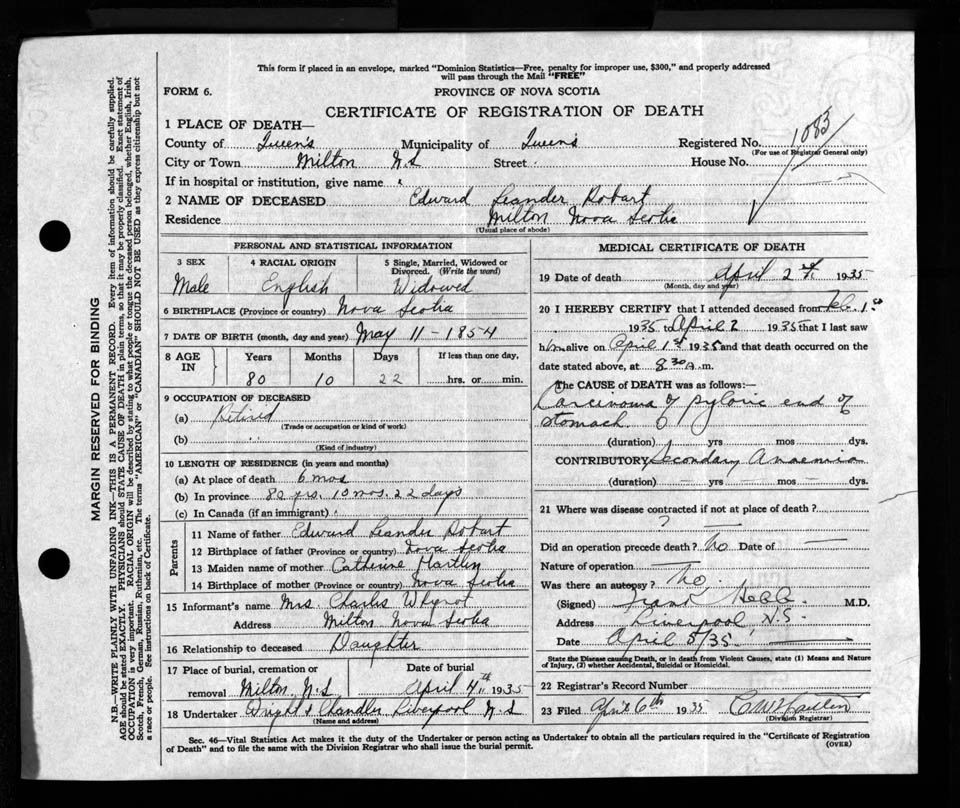 This form if placed in an envelope, marked "Dominion Statistics—Free, penalty for improper use, $300," and properly addressed
will pass through the Mail "FREE"
FORM 6.
PROVINCE OF NOVA SCOTIA
CERTIFICATE OF REGISTRATION OF DEATH
1 PLACE OF DEATH—
County of Queen's Municipality of Queens Registered No. 1083
(For use of Registrar General only)
City or Town Milton N.S Street House No.
If in hospital or institution, give name
2 NAME OF DECEASED Edward Leander Robart
Residence Milton Nova Scotia
(Usual place of abode)
PERSONAL AND STATISTICAL INFORMATION
3 SEX 4 RACIAL ORIGIN 5 Single, Married, Widowed or Divorced. (Write the word)
Male English Widowed
6 BIRTHPLACE (Province or country) Nova Scotia
7 DATE OF BIRTH (month, day and year) May 11 - 1854
8 AGE IN Years Months Days If less than one day,
80 10 22 hrs. or min.
9 OCCUPATION OF DECEASED
(a) Retired
(Trade or occupation or kind of work)
(b)
(Kind of industry)
10 LENGTH OF RESIDENCE (in years and months)
(a) At place of death 6 mos
(b) In province 80 yrs. 10 mos. 22 days
(c) In Canada (if an immigrant)
Parents
11 Name of father Edward Leander Robart
12 Birthplace of father (Province or country) Nova Scotia
13 Maiden name of mother Catherine
14 Birthplace of mother (Province or country) Nova Scotia
15 Informant's name Mrs. Charles Whynot
Address Milton Nova Scotia
16 Relationship to deceased Daughter
17 Place of burial, cremation or removal Milton, N.S Date of burial April 4th 1935
18 Undertaker Wright & Chandler Liverpool N.S
(Name and address)
MEDICAL CERTIFICATE OF DEATH
19 Date of death April 2nd 1935
(Month, day and year)
20 I HEREBY CERTIFY that I attended deceased from Feb. 1st
1935 to April 2 1935 that I last saw
him alive on April 1st 1935 and that death occurred on the
date stated above, at 8 30 A.m.
The CAUSE of DEATH was as follows:
Carcinoma of pyloric end of
stomach
(duration) yrs mos dys.
CONTRIBUTORY Secondary Anaemia
(duration) — yrs — mos — dys.
21 Where was disease contracted if not at place of death?
?
Did an operation precede death? No Date of —
Nature of operation —
Was there an autopsy? No.
(Signed) M.D.
Address Liverpool N.S.
Date April 5/35
State the Disease causing Death, or in death from Violent Causes, state (1) Means and Nature
of Injury, (2) whether Accidental, Suicidal or Homicidal.
22 Registrar's Record Number
23 Filed April 6th 1935
(Division Registrar)
Sec. 46—Vital Statistics Act makes it the duty of the Undertaker or person acting as Undertaker to obtain all the particulars required in the "Certificate of Registration
of Death" and to file the same with the Division Registrar who shall issue the burial permit. (OVER)
MARGIN RESERVED FOR BINDING
N.B.—WRITE PLAINLY WITH UNFADING INK—THIS IS A PERMANENT RECORD. Every item of information should be carefully supplied.
AGE should be stated EXACTLY. PHYSICIANS should STATE CAUSE OF DEATH in plain terms, so that it may be properly classified. Exact statement of
OCCUPATION is very important. RACIAL ORIGIN will be described by stating to what people or tongue the deceased person belonged, whether English, Irish,
Scotch, French, German, Russian, Ruthenian, etc. The terms "AMERICAN" or "CANADIAN" SHOULD NOT BE USED as they express citizenship but not
a race or people. See instructions on back of Certificate.